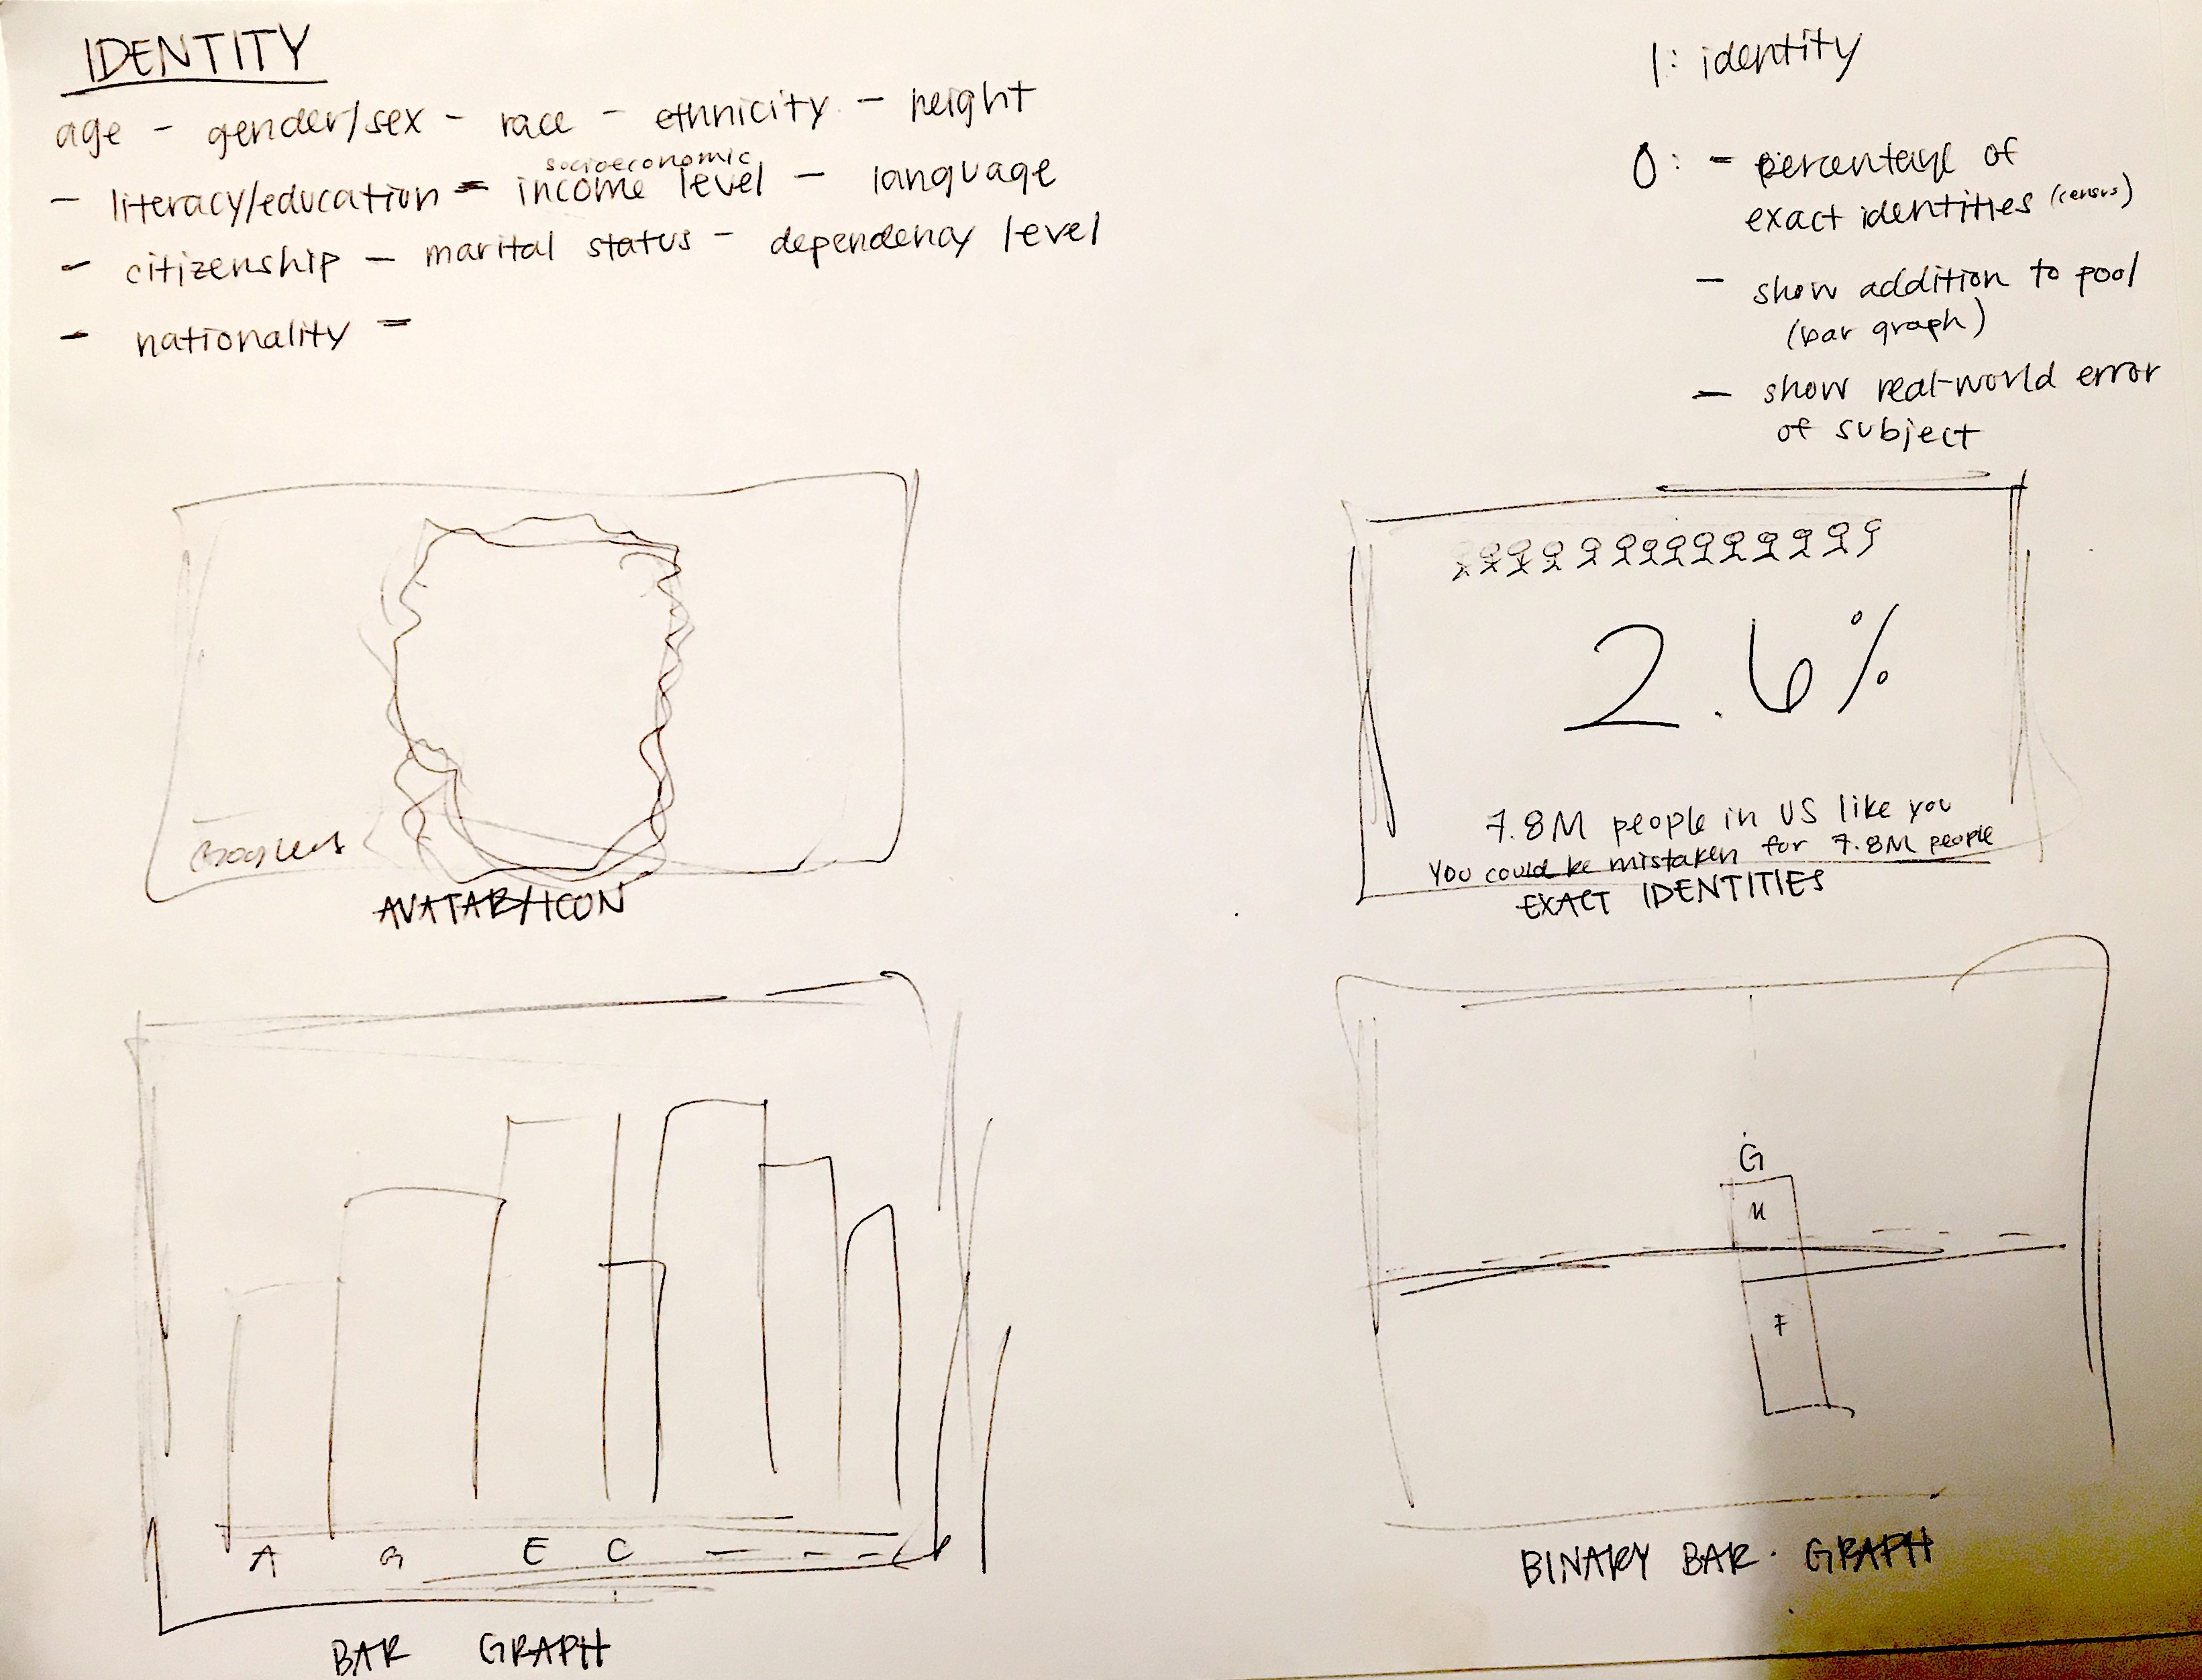 IDENTITY
age - gender/sex - race - ethnicity - height
socioeconomic
- literacy/education - income level - language
- citizenship - marital status - dependency level
- nationality -
1: identity
0: - percentage of
exact identities (census)
- show addition to pool
(bar graph)
- show real-world error
of subject
AVATAR/ICON
2.6%
7.8M people in US like you
You could be mistaken for 7.8M people
EXACT IDENTITIES
A G E C - - -
BAR GRAPH
G
M
F
BINARY BAR GRAPH